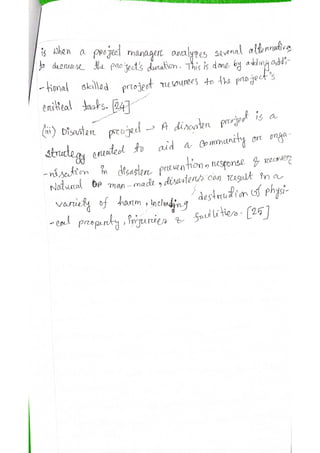 is when a project manager analyzes several alternatives
to decrease the project's duration. This is done by adding addi-
-tional skilled project resources to the project's
critical tasks. [24]
(iii) Disaster project → A disaster project is a
strategy created to aid a community or orga-
-nisation in disaster prevention, response & recovery
Natural or man-made, disasters can result in a
variety of harm, including destruction of physi-
-cal property, injuries & facilities. [25]